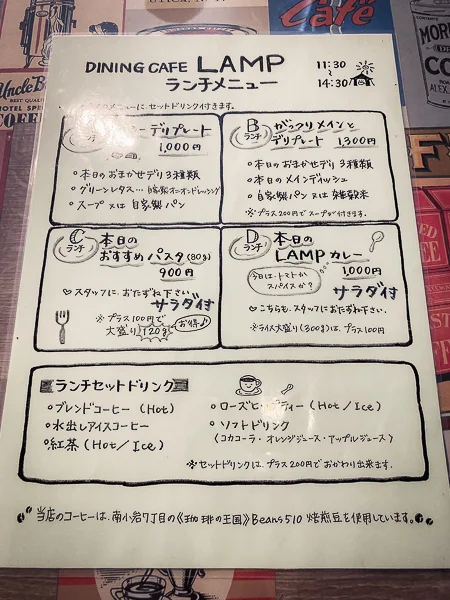 DINING CAFE LAMP
ランチメニュー
11:30
~
14:30
メニューに、セットドリンク付きます。
ランチ
デリプレート
1,000円
○本日のおまかせデリ3種類
○グリーンレタス…自家製オニオンドレッシング
○スープ又は自家製パン
B
ランチ
がっつりメインと
デリプレート 1,300円
○本日のおまかせデリ3種類
○本日のメインディッシュ
○自家製パン又は雑穀米
※プラス200円でスープが付きます。
C
ランチ
本日の
おすすめパスタ(80g)
900円
♡スタッフに、おたずね下さい。
サラダ付
※プラス100円で
大盛り120g
お得♪
D
ランチ
本日の
LAMPカレー
今日は、トマトか
スパイスか?
1,000円
サラダ付
♡こちらも、スタッフにおたずね下さい。
※ライス大盛り(300g)は、プラス100円
ランチセットドリンク
○ブレンドコーヒー (Hot)
○水出しアイスコーヒー
○紅茶 (Hot/Ice)
○ローズヒップティー (Hot/Ice)
○ソフトドリンク
(コカコーラ・オレンジジュース・アップルジュース)
※セットドリンクは、プラス200円でおかわり出来ます。
当店のコーヒーは、南小岩7丁目の《珈琲の王国》Beans510 焙煎豆を使用しています。
Uncle B
BEST QUALITY
HOTEL SPE
COFFEE
Cafe
MOR
ALEX